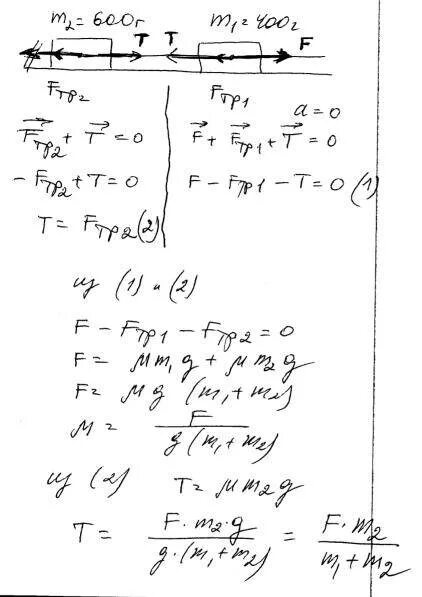 m₂ = 600г m₁ = 400г
T T F
Fтр₂ Fтр₁
a = 0
F⃗тр₂ + T⃗ = 0 F⃗ + F⃗тр₁ + T⃗ = 0
- Fтр₂ + T = 0 F - Fтр1 - T = 0 (1)
T = Fтр2 (2)
из (1) и (2)
F - Fтр1 - Fтр2 = 0
F = μm₁g + μm₂g
F = μg (m₁ + m₂)
μ = F / g(m₁ + m₂)
из (2) T = μm₂g
T = F·m₂·g / g·(m₁ + m₂) = F·m₂ / m₁ + m₂